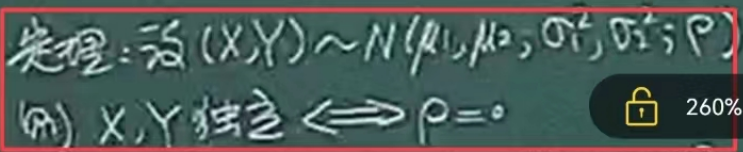 定理:设 (X,Y)~N(μ₁,μ₂,σ₁²,σ₂²;ρ)
则) X,Y 独立 ⟺ ρ=0
260%